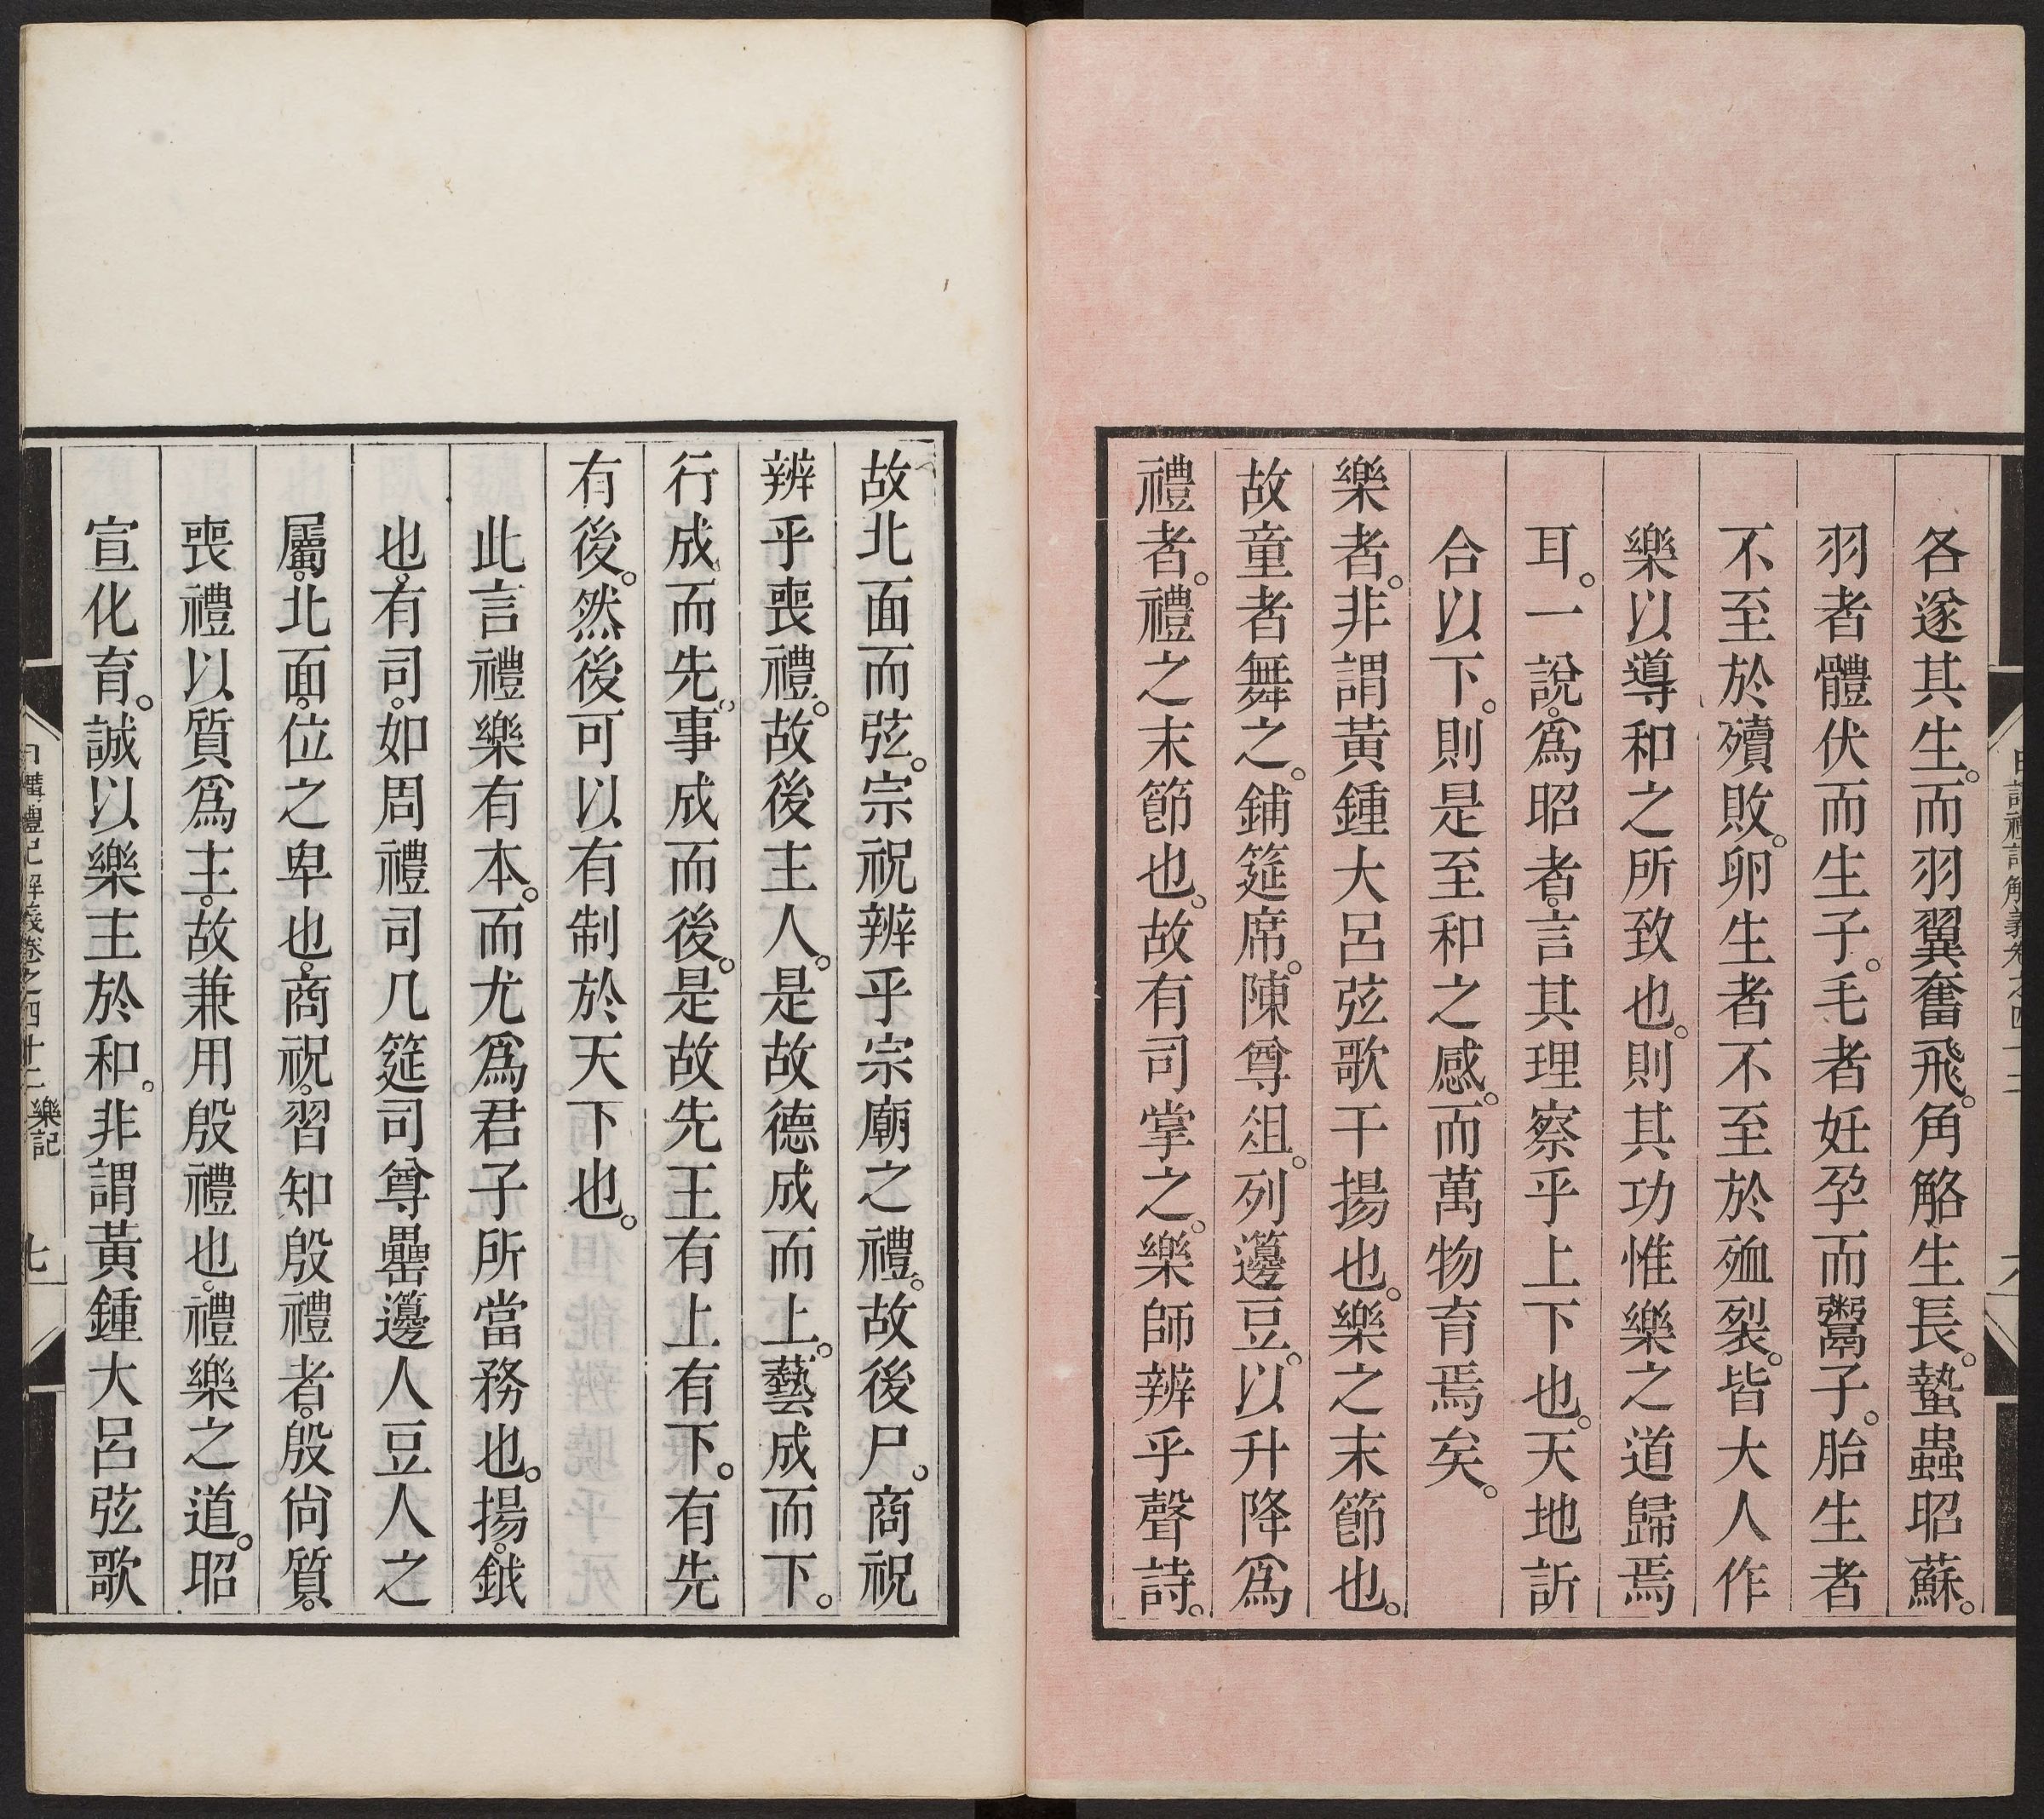 各遂其生。而羽翼奮飛。角觡生長。蟄蟲昭蘇。
羽者體伏而生子。毛者妊孕而鬻子。胎生者
不至於殰敗。卵生者不至於殈裂。皆大人作
樂以導和之所致也。則其功惟樂之道歸焉
耳。一說。爲昭者。言其理察乎上下也。天地訢
合以下。則是至和之感。而萬物育焉矣。
樂者。非謂黃鍾大呂弦歌干揚也。樂之末節也。
故童者舞之。鋪筵席。陳尊俎。列籩豆。以升降爲
禮者。禮之末節也。故有司掌之。樂師辨乎聲詩。
故北面而弦。宗祝辨乎宗廟之禮。故後尸。商祝
辨乎喪禮。故後主人。是故德成而上。藝成而下。
行成而先。事成而後。是故先王有上有下。有先
有後。然後可以有制於天下也。
此言禮樂有本。而尤爲君子所當務也。揚。鉞
也。有司。如周禮司几筵司尊罍籩人豆人之
屬。北面。位之卑也。商祝。習知殷禮者。殷尙質。
喪禮以質爲主。故兼用殷禮也。禮樂之道。昭
宣化育。誠以樂主於和。非謂黃鍾大呂弦歌
日講禮記解義卷之四十二 樂記 七